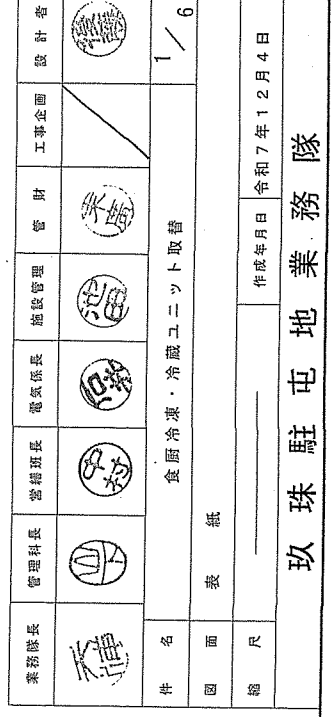 業務隊長 管理科長 営繕班長 電気係長 施設管理 管財 工事企画 設計者
山下 中村 池田 末廣
件名 食厨冷凍・冷蔵ユニット取替 1/6
図面 表紙
縮尺 作成年月日 令和7年12月4日
玖珠駐屯地業務隊